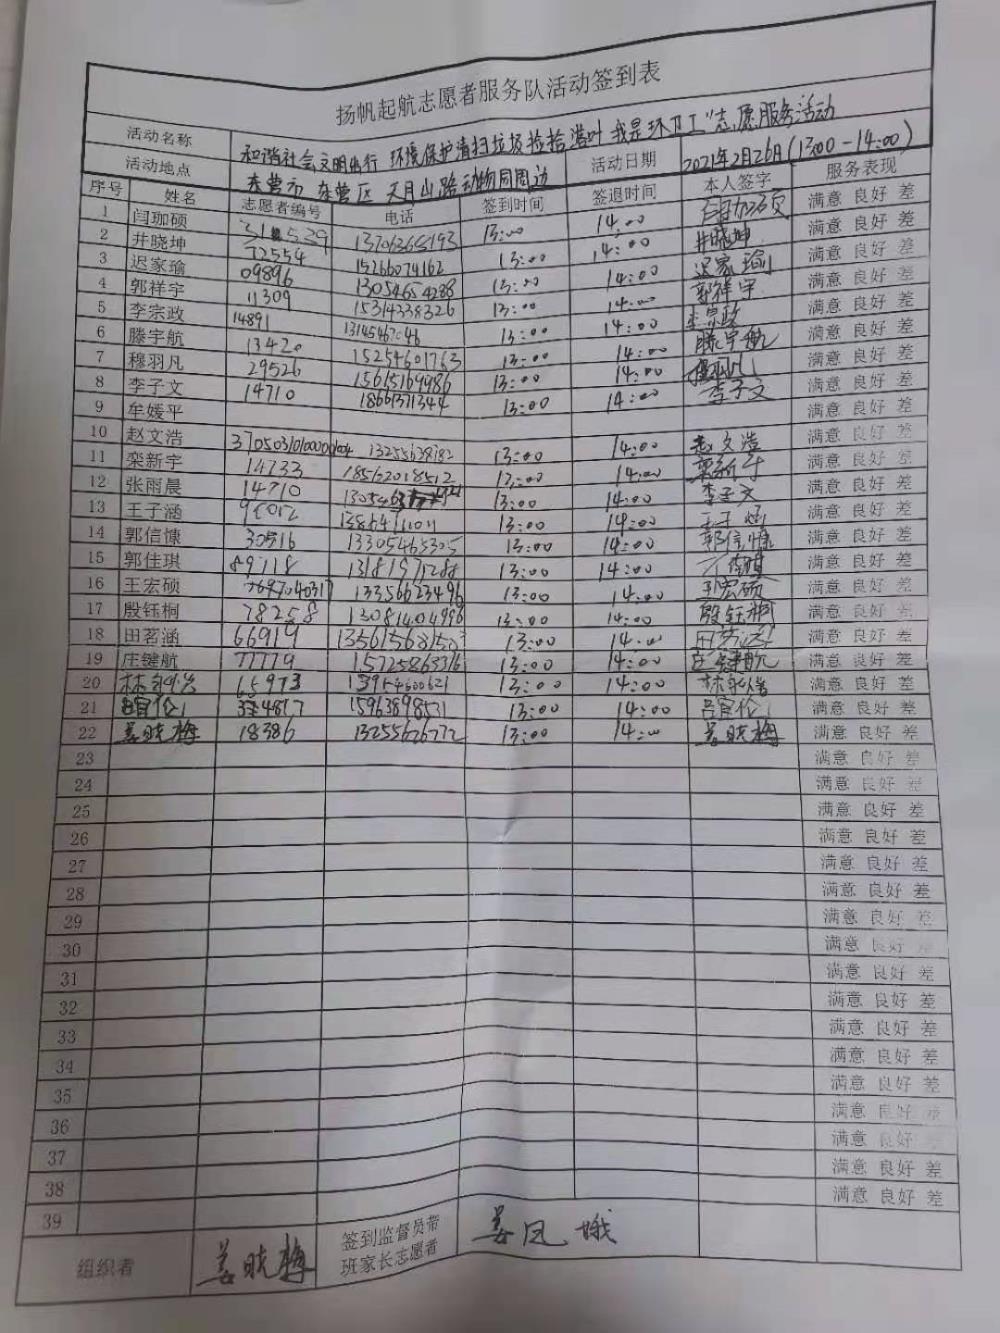 扬帆起航志愿者服务队活动签到表
活动名称 和谐社会文明出行 环境保护清扫垃圾捡拾落叶 我是环卫工"志愿服务活动
活动地点 东营市 东营区 天目山路动物园周边 活动日期 2021年2月26日(13:00-14:00)
序号 姓名 志愿者编号 电话 签到时间 签退时间 本人签字 服务表现
1 闫珈硕 13:00 14:00 满意 良好 差
2 井晓坤 72554 15266074162 13:00 14:00 井晓坤 满意 良好 差
3 迟家瑜 09896 13054654288 13:00 14:00 迟家瑜 满意 良好 差
4 郭祥宇 11309 15314338326 13:00 14:00 郭祥宇 满意 良好 差
5 李宗政 14891 13:00 14:00 李宗政 满意 良好 差
6 滕宇航 13420 15254601763 13:00 14:00 滕宇航 满意 良好 差
7 穆羽凡 29526 15615169986 13:00 14:00 满意 良好 差
8 李子文 14710 18661371344 13:00 14:00 李子文 满意 良好 差
9 牟媛平 满意 良好 差
10 赵文浩 13255638182 13:00 14:00 赵文浩 满意 良好 差
11 栾新宇 14733 18562018512 13:00 14:00 栾新宇 满意 良好 差
12 张雨晨 14710 13:00 14:00 李子文 满意 良好 差
13 王子涵 13:00 14:00 王子涵 满意 良好 差
14 郭信慷 30516 13305465305 13:00 14:00 郭信慷 满意 良好 差
15 郭佳琪 89718 13181971288 13:00 14:00 满意 良好 差
16 王宏硕 13356623496 13:00 14:00 王宏硕 满意 良好 差
17 殷钰桐 78258 13081404996 13:00 14:00 殷钰桐 满意 良好 差
18 田茗涵 66919 13:00 14:00 满意 良好 差
19 庄键航 77779 15725863316 13:00 14:00 庄键航 满意 良好 差
20 65973 13954600621 13:00 14:00 满意 良好 差
21 吕宜伦 15963898531 13:00 14:00 吕宜伦 满意 良好 差
22 姜晓梅 18386 13255626772 13:00 14:00 姜晓梅 满意 良好 差
23 满意 良好 差
24 满意 良好 差
25 满意 良好 差
26 满意 良好 差
27 满意 良好 差
28 满意 良好 差
29 满意 良好 差
30 满意 良好 差
31 满意 良好 差
32 满意 良好 差
33 满意 良好 差
34 满意 良好 差
35 满意 良好 差
36 满意 良好 差
37 满意 良好 差
38 满意 良好 差
39 满意 良好 差
组织者 姜晓梅 签到监督员带班家长志愿者 姜凤娥